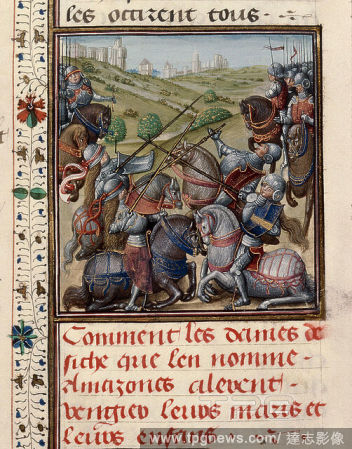 les occirent tous.
Comment les dames de
siche que len nomme
Amazones alerent
vengier leurs maris et
leurs enfans
www.tpgnews.com / 達志影像